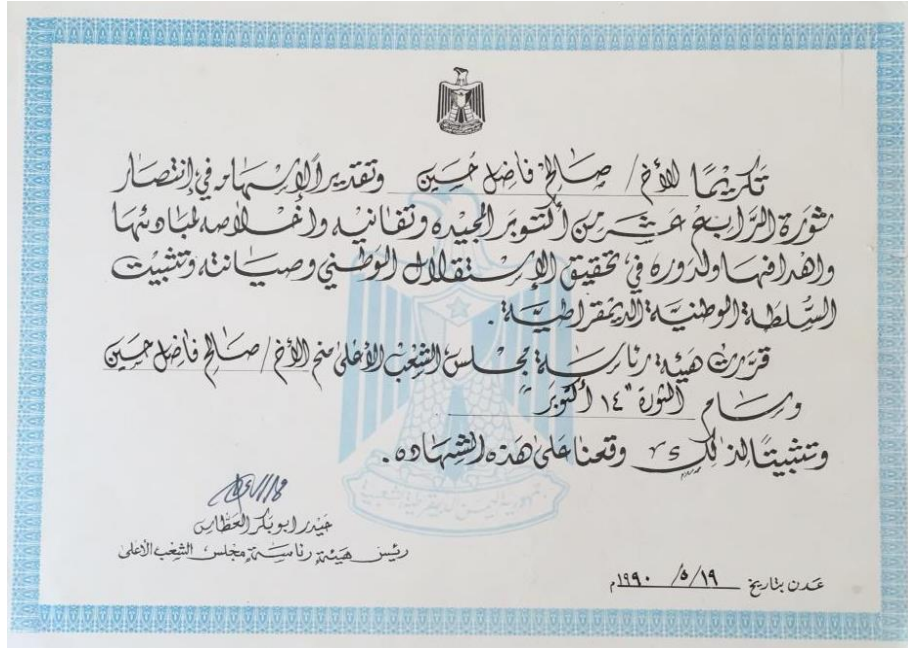 تكريمًا للأخ / صالح فاضل حسين وتقديرًا لإسهامه في إنتصار
ثورة الرابع عشر من أكتوبر المجيده وتفانيه واخلاصه لمبادئها
واهدافها ولدوره في تحقيق الإستقلال الوطني وصيانته وتثبيت
السلطة الوطنية الديمقراطية .
قررت هيئة رئاسة مجلس الشعب الأعلى منح الأخ / صالح فاضل حسين
وسام الثورة "١٤ أكتوبر"
وتثبيتًا لذلك وقعنا على هذه الشهاده .
حيدر ابوبكر العطاس
رئيس هيئة رئاسة مجلس الشعب الأعلى
عدن بتاريخ ١٩/٥/١٩٩٠م
جمهورية اليمن الديمقراطية الشعبية